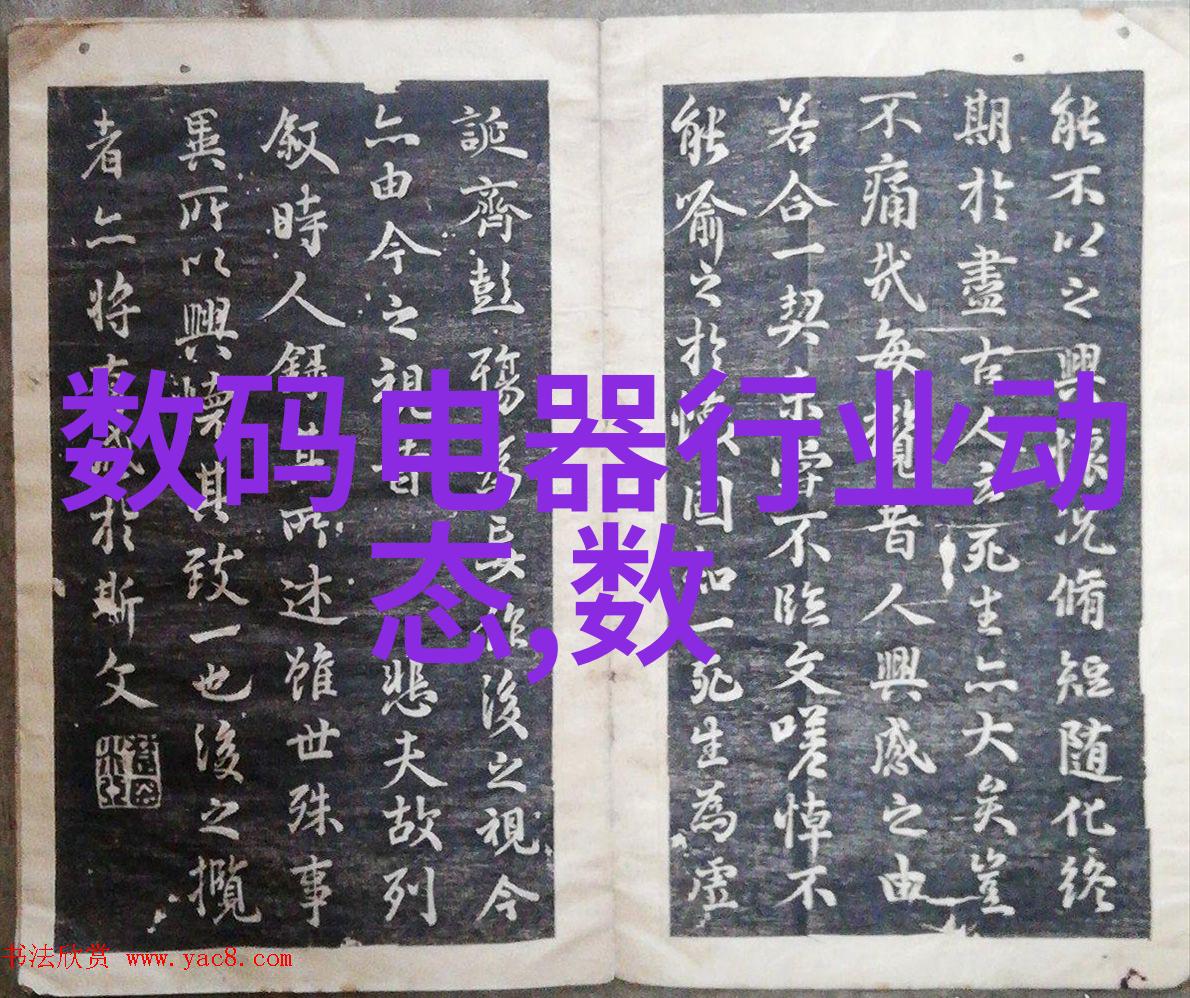 能不以之興懷况脩短随化終
期於盡古人云死生亦大矣豈
不痛哉每攬昔人興感之由
若合一契未嘗不臨文嗟悼不
能喻之於懷固知一死生為虛
誕齊彭殤為妄作後之視今
亦由今之視昔悲夫故列
叙時人録其所述雖世殊事
異所以興懷其致一也後之攬
者亦將有感於斯文
数码电器行业动
态,数
书法欣赏 www.yac8.com